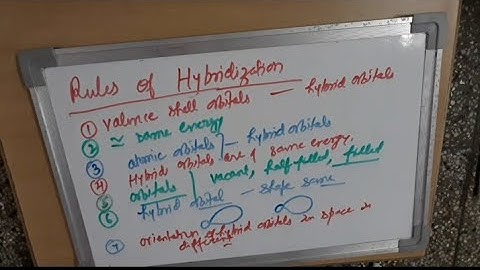 Rules of Hybridization
① Valence shell orbitals — hybrid orbitals
② ≃ same energy
③ atomic orbitals — hybrid orbitals
④ Hybrid orbitals are of same energy.
⑤ orbitals } vacant, half filled, filled
⑥ hybrid orbital — shape same
⑦ orientation of hybrid orbitals in space is
different